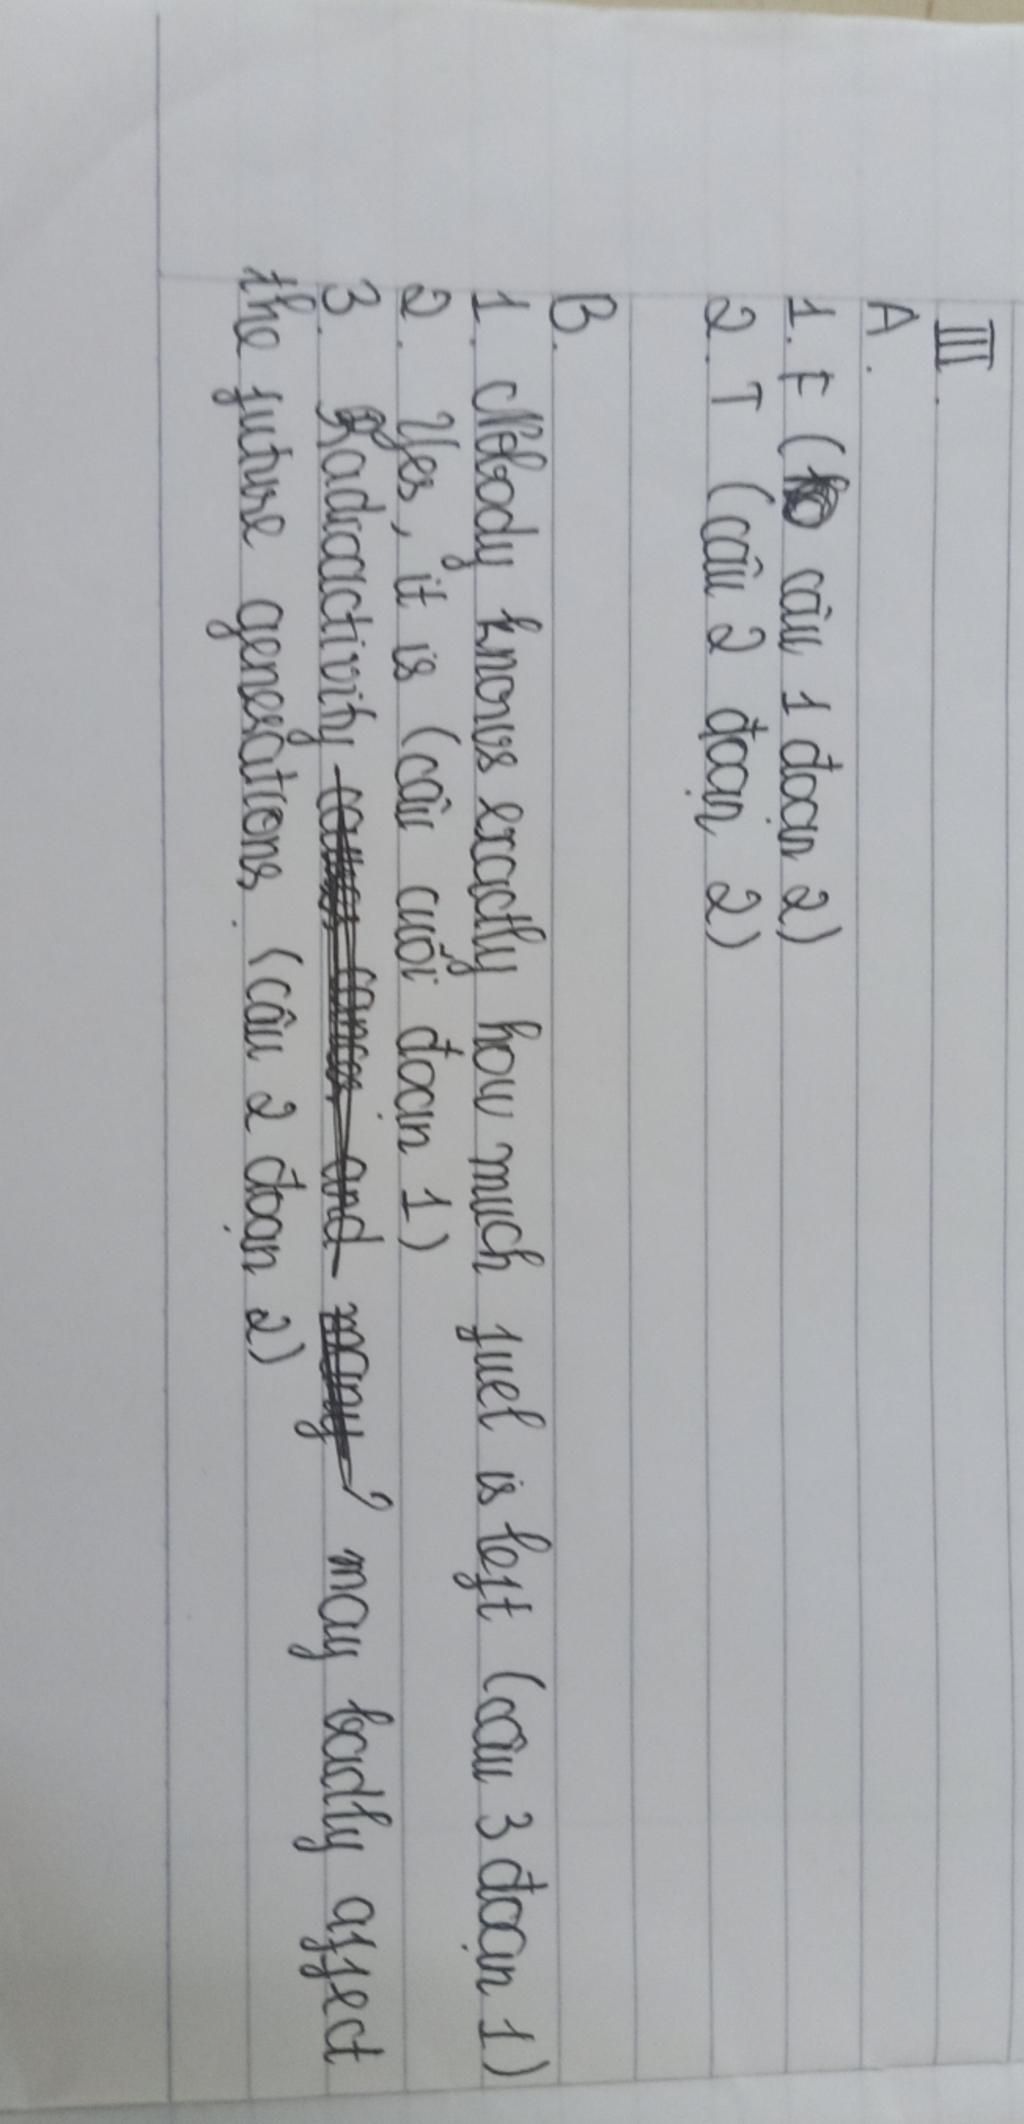 III.
A.
1. F (câu 1 đoạn 2)
2. T (câu 2 đoạn 2)
B.
1. Nobody knows exactly how much fuel is left (câu 3 đoạn 1)
2. Yes, it is (câu cuối đoạn 1)
3. Radioactivity causes cancer and many may badly affect
the future generations. (câu 2 đoạn 2)